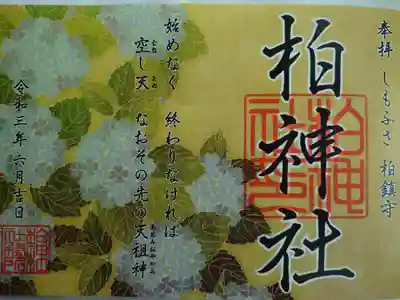 奉拝 しもふさ 柏鎮守
柏神社
始めなく 終わりなければ
空し天 なおその先の天祖神
令和三年六月吉日